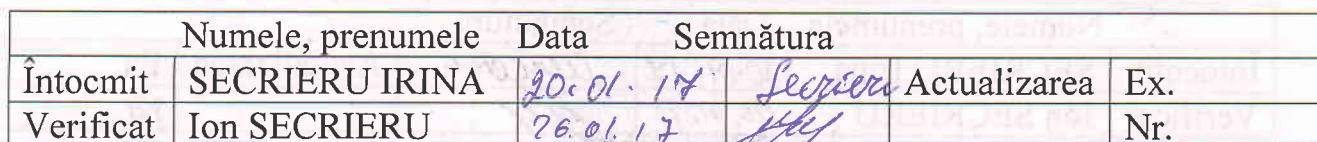 Numele, prenumele Data Semnătura
Întocmit SECRIERU IRINA 20.01.17 Secrieru Actualizarea Ex.
Verificat Ion SECRIERU 26.01.17 Nr.